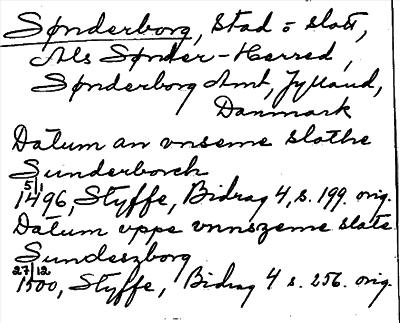 Sønderborg, stad o slott,
Als Sønder-Herred,
Sønderborg Amt, Jylland,
Danmark
Datum an vnseme slathe
Sunderborch
5/1 1496, Styffe, Bidrag 4, s. 199. orig.
Datum vppe vnnszeme slate
Sundeszborg
27/12 1500, Styffe, Bidrag 4 s. 256. orig.